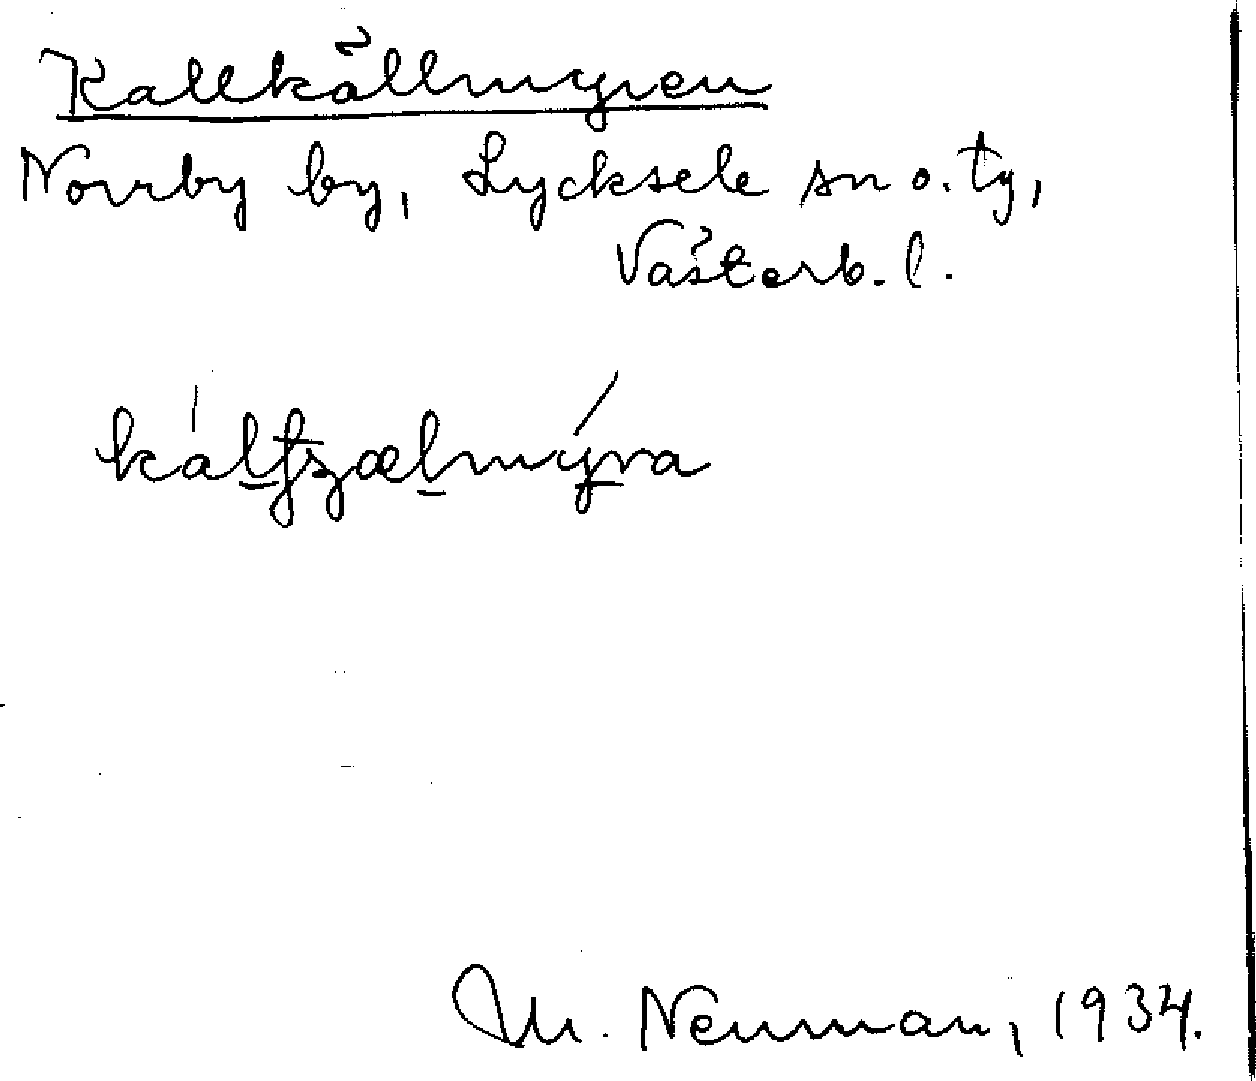 Kallkällmyren
Norrby by, Lycksele sn o. tg,
Västerb. l.
M. Neuman, 1934.